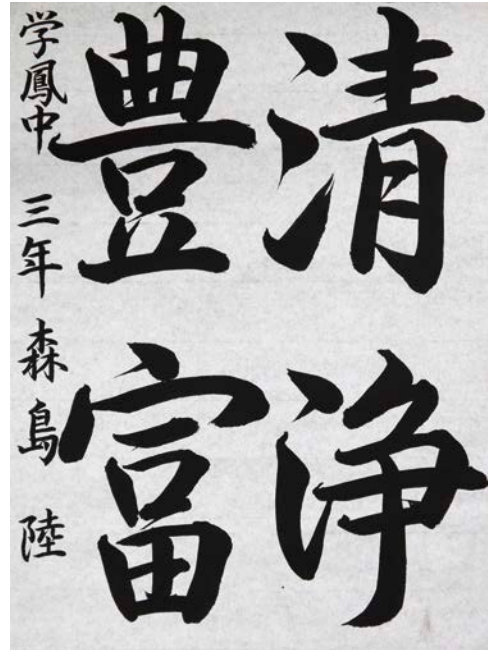 清浄
豊富
学鳳中 三年 森島 陸